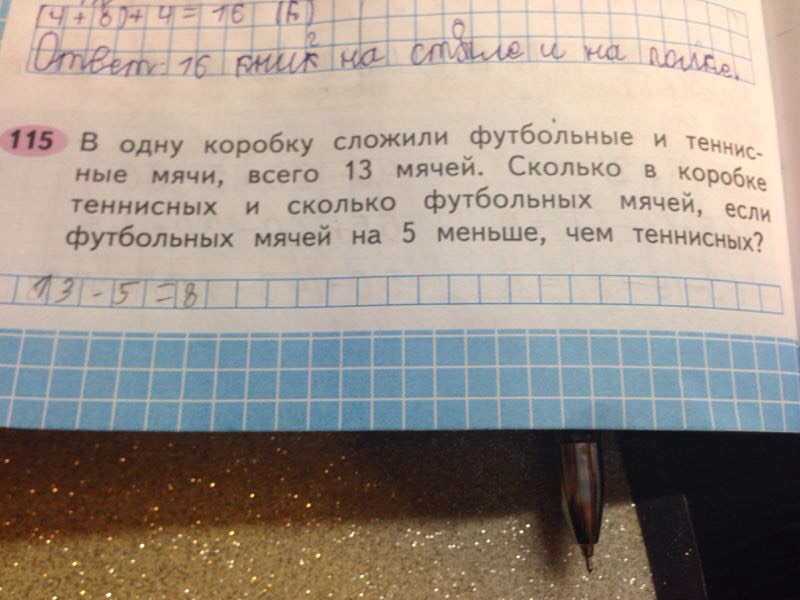 (4+8)+4=16 (К)
Ответ: 16 книг на столе и на полке.
115 В одну коробку сложили футбольные и теннис-
ные мячи, всего 13 мячей. Сколько в коробке
теннисных и сколько футбольных мячей, если
футбольных мячей на 5 меньше, чем теннисных?
13-5=8